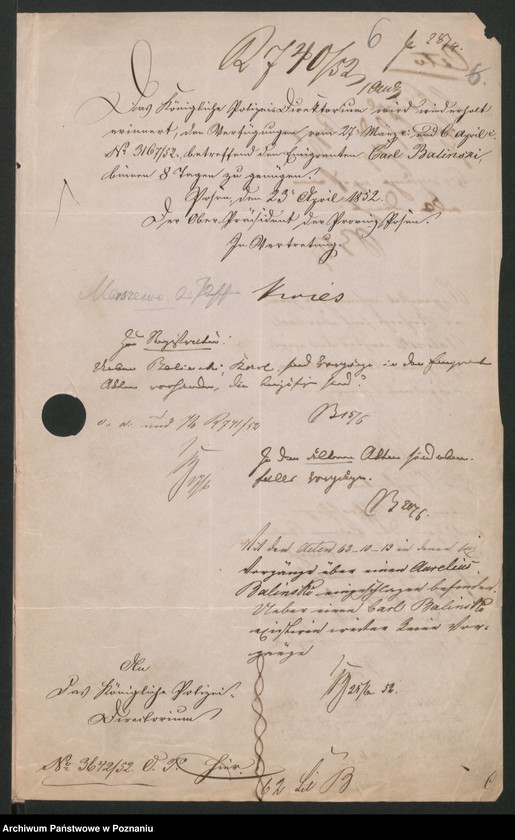 6
287/4.
R 740/52
6.
Das Königliche Polizei-Direktorium wird wiederholt
erinnert, den Verfügungen vom 27 März c. und 6 April c.
No 3167/52, betreffend den Emigranten Carl Balinski,
binnen 8 Tagen zu genügen.
Posen, den 23t April 1852.
Der Ober-Präsident der Provinz Posen.
In Vertretung.
Kries
Zur Registratur:
Ueber Balinski, Karl, sind Vorgänge in den Emigranten
Akten vorhanden, die
und R 741/52
B 15/5
In den älteren Akten sind eben-
falls Vorgänge.
B 20/5.
Mit den Acten 63-10-13 in denen
Vorgänge über einen Aurelius
Balinski eingeschlagen befinden.
Ueber einen Carl Balinski
existiren weiter keine Vor-
gänge
25/6 52.
An
Das Königliche Polizei-
Directorium
No 3642/52 O. P. Hier.
62 Lit B
Archiwum Państwowe w Poznaniu